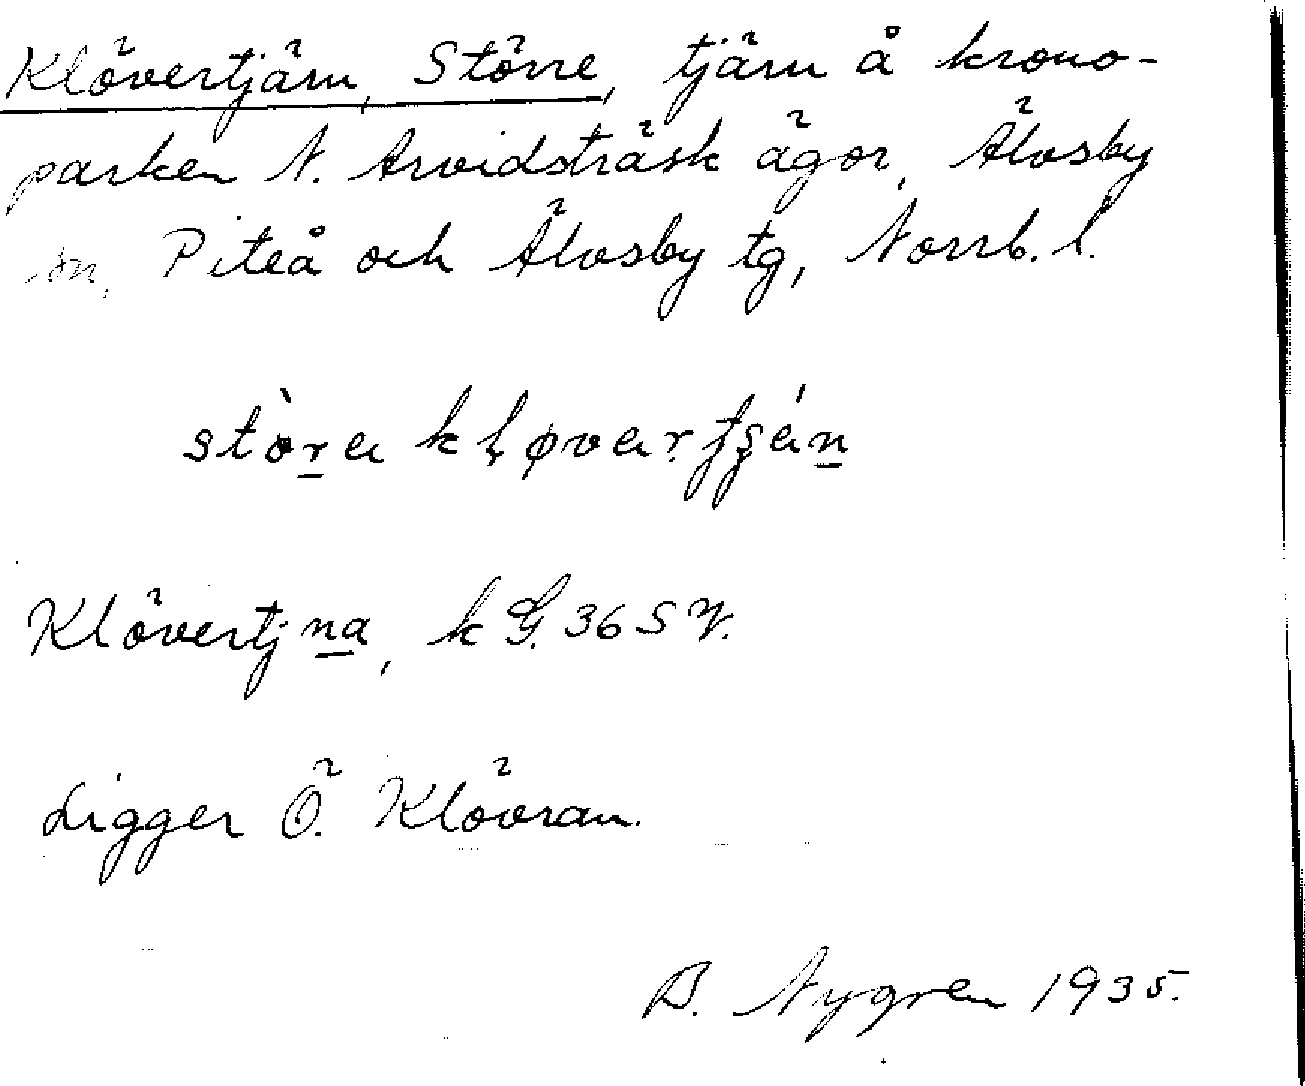 Klövertjärn, Större, tjärn å krono-
parken N. Arvidsträsk ägor, Älvsby
sn, Piteå och Älvsby tg, Norrb. l.
stòra kḷøvaṛtʂén
Klövertjna, k G. 36 S V.
Ligger Ö. Klövran.
B. Nygren 1935.